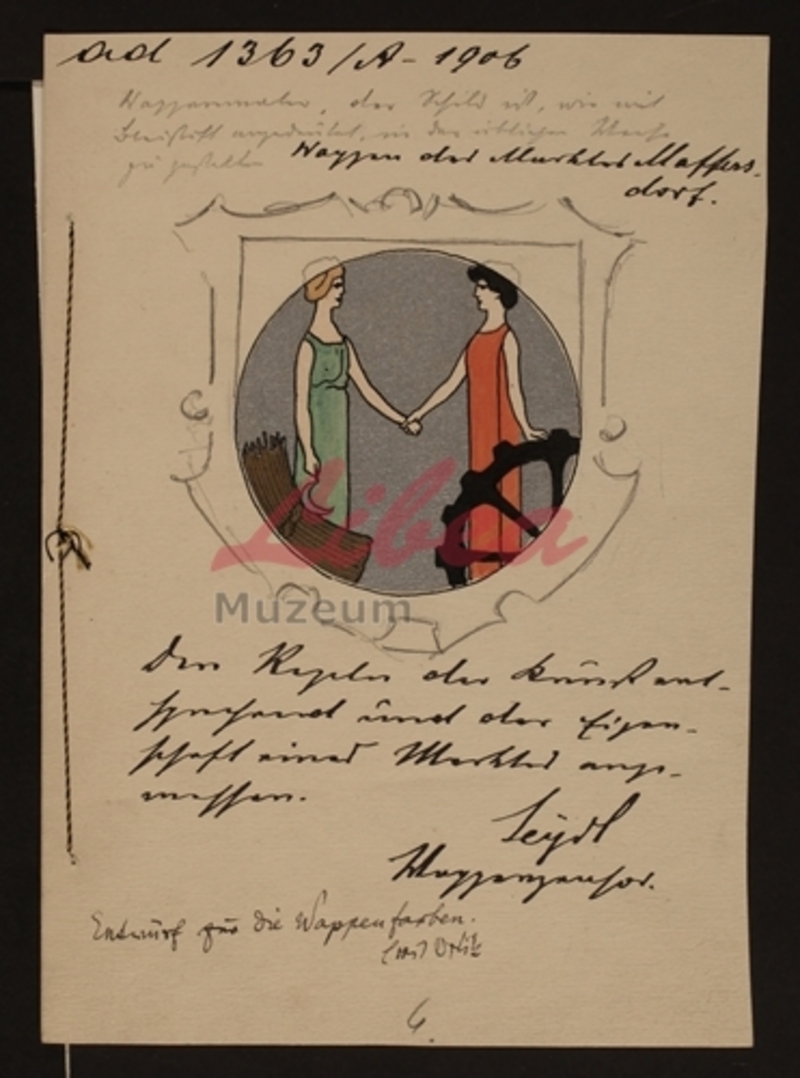 ad 1363/A - 1906
Wappenmaler, der Schild ist, wie mit
Bleistift angedeutet, in der üblichen Weise
zu gestalten
Wappen des Marktes Maffers-
dorf.
Libra
Muzeum
Den Regeln der Kunst ent-
sprechend und der Eigen-
schaft eines Marktes ange-
messen.
Seydl
Wappenzensor.
Entwurf für die Wappenfarben.
6.